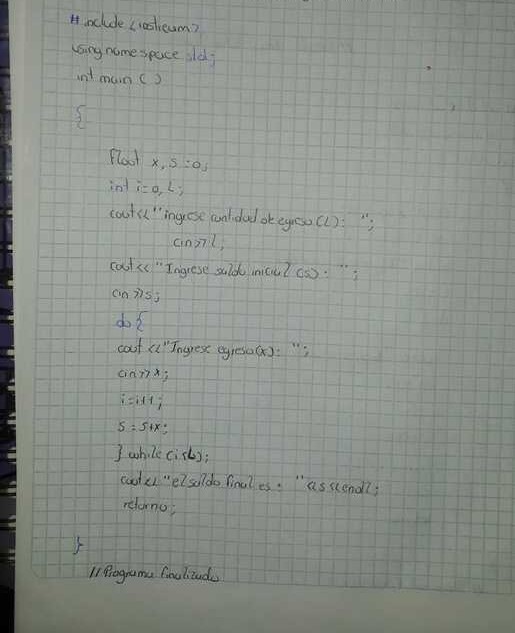 # include <iostream>
using namespace std;
int main ( )
{
float x, s=0;
int i=0, L;
cout<<"ingrese cantidad de egreso (L): ";
cin>>l;
cout<< "Ingrese saldo inicial (s): ";
cin>>s;
do {
cout <<"Ingrese egreso(x): ";
cin>>x;
i=i+1;
s=s+x;
} while (i≤L);
cout<< "el saldo final es: "
retorno;
}
//Programa finalizado